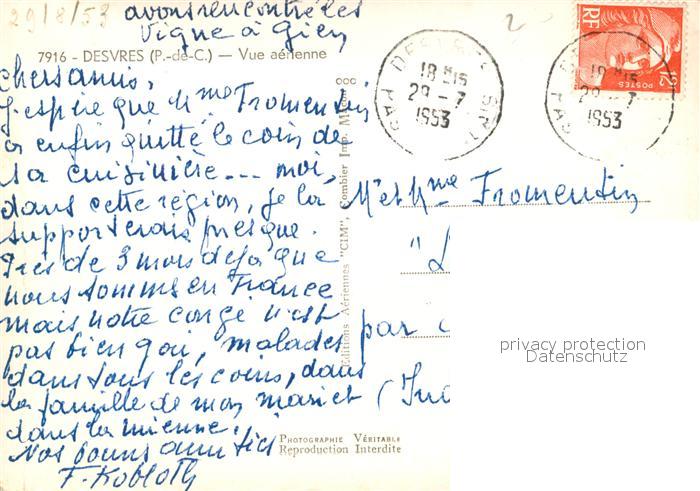 29/8/53
avons rencontré les
Vigne à Gien
7916 - DESVRES (P.-de-C.) — Vue aérienne
chers amis,
J'espère que Mme Fromentin
a enfin quitté le coin de
sa cuisinière --- moi,
dans cette région, je la
supporterais presque.
Près de 3 mois déjà que
nous sommes en France
mais notre congé n'est
pas bien gai, malades
dans tous les coins, dans
la famille de mon mari et
dans la mienne.
Nos bonnes amitiés
F. Kobloth
Editions Aériennes "CIM", Combier Imp. Mâcon
PHOTOGRAPHIE VÉRITABLE
Reproduction Interdite
DESVRES
18 H 15
29 - 7
1953
PAS
18 H 15
29 - 7
1953
PAS
RF
POSTES
12
M et Mme Fromentin
par
privacy protection
Datenschutz